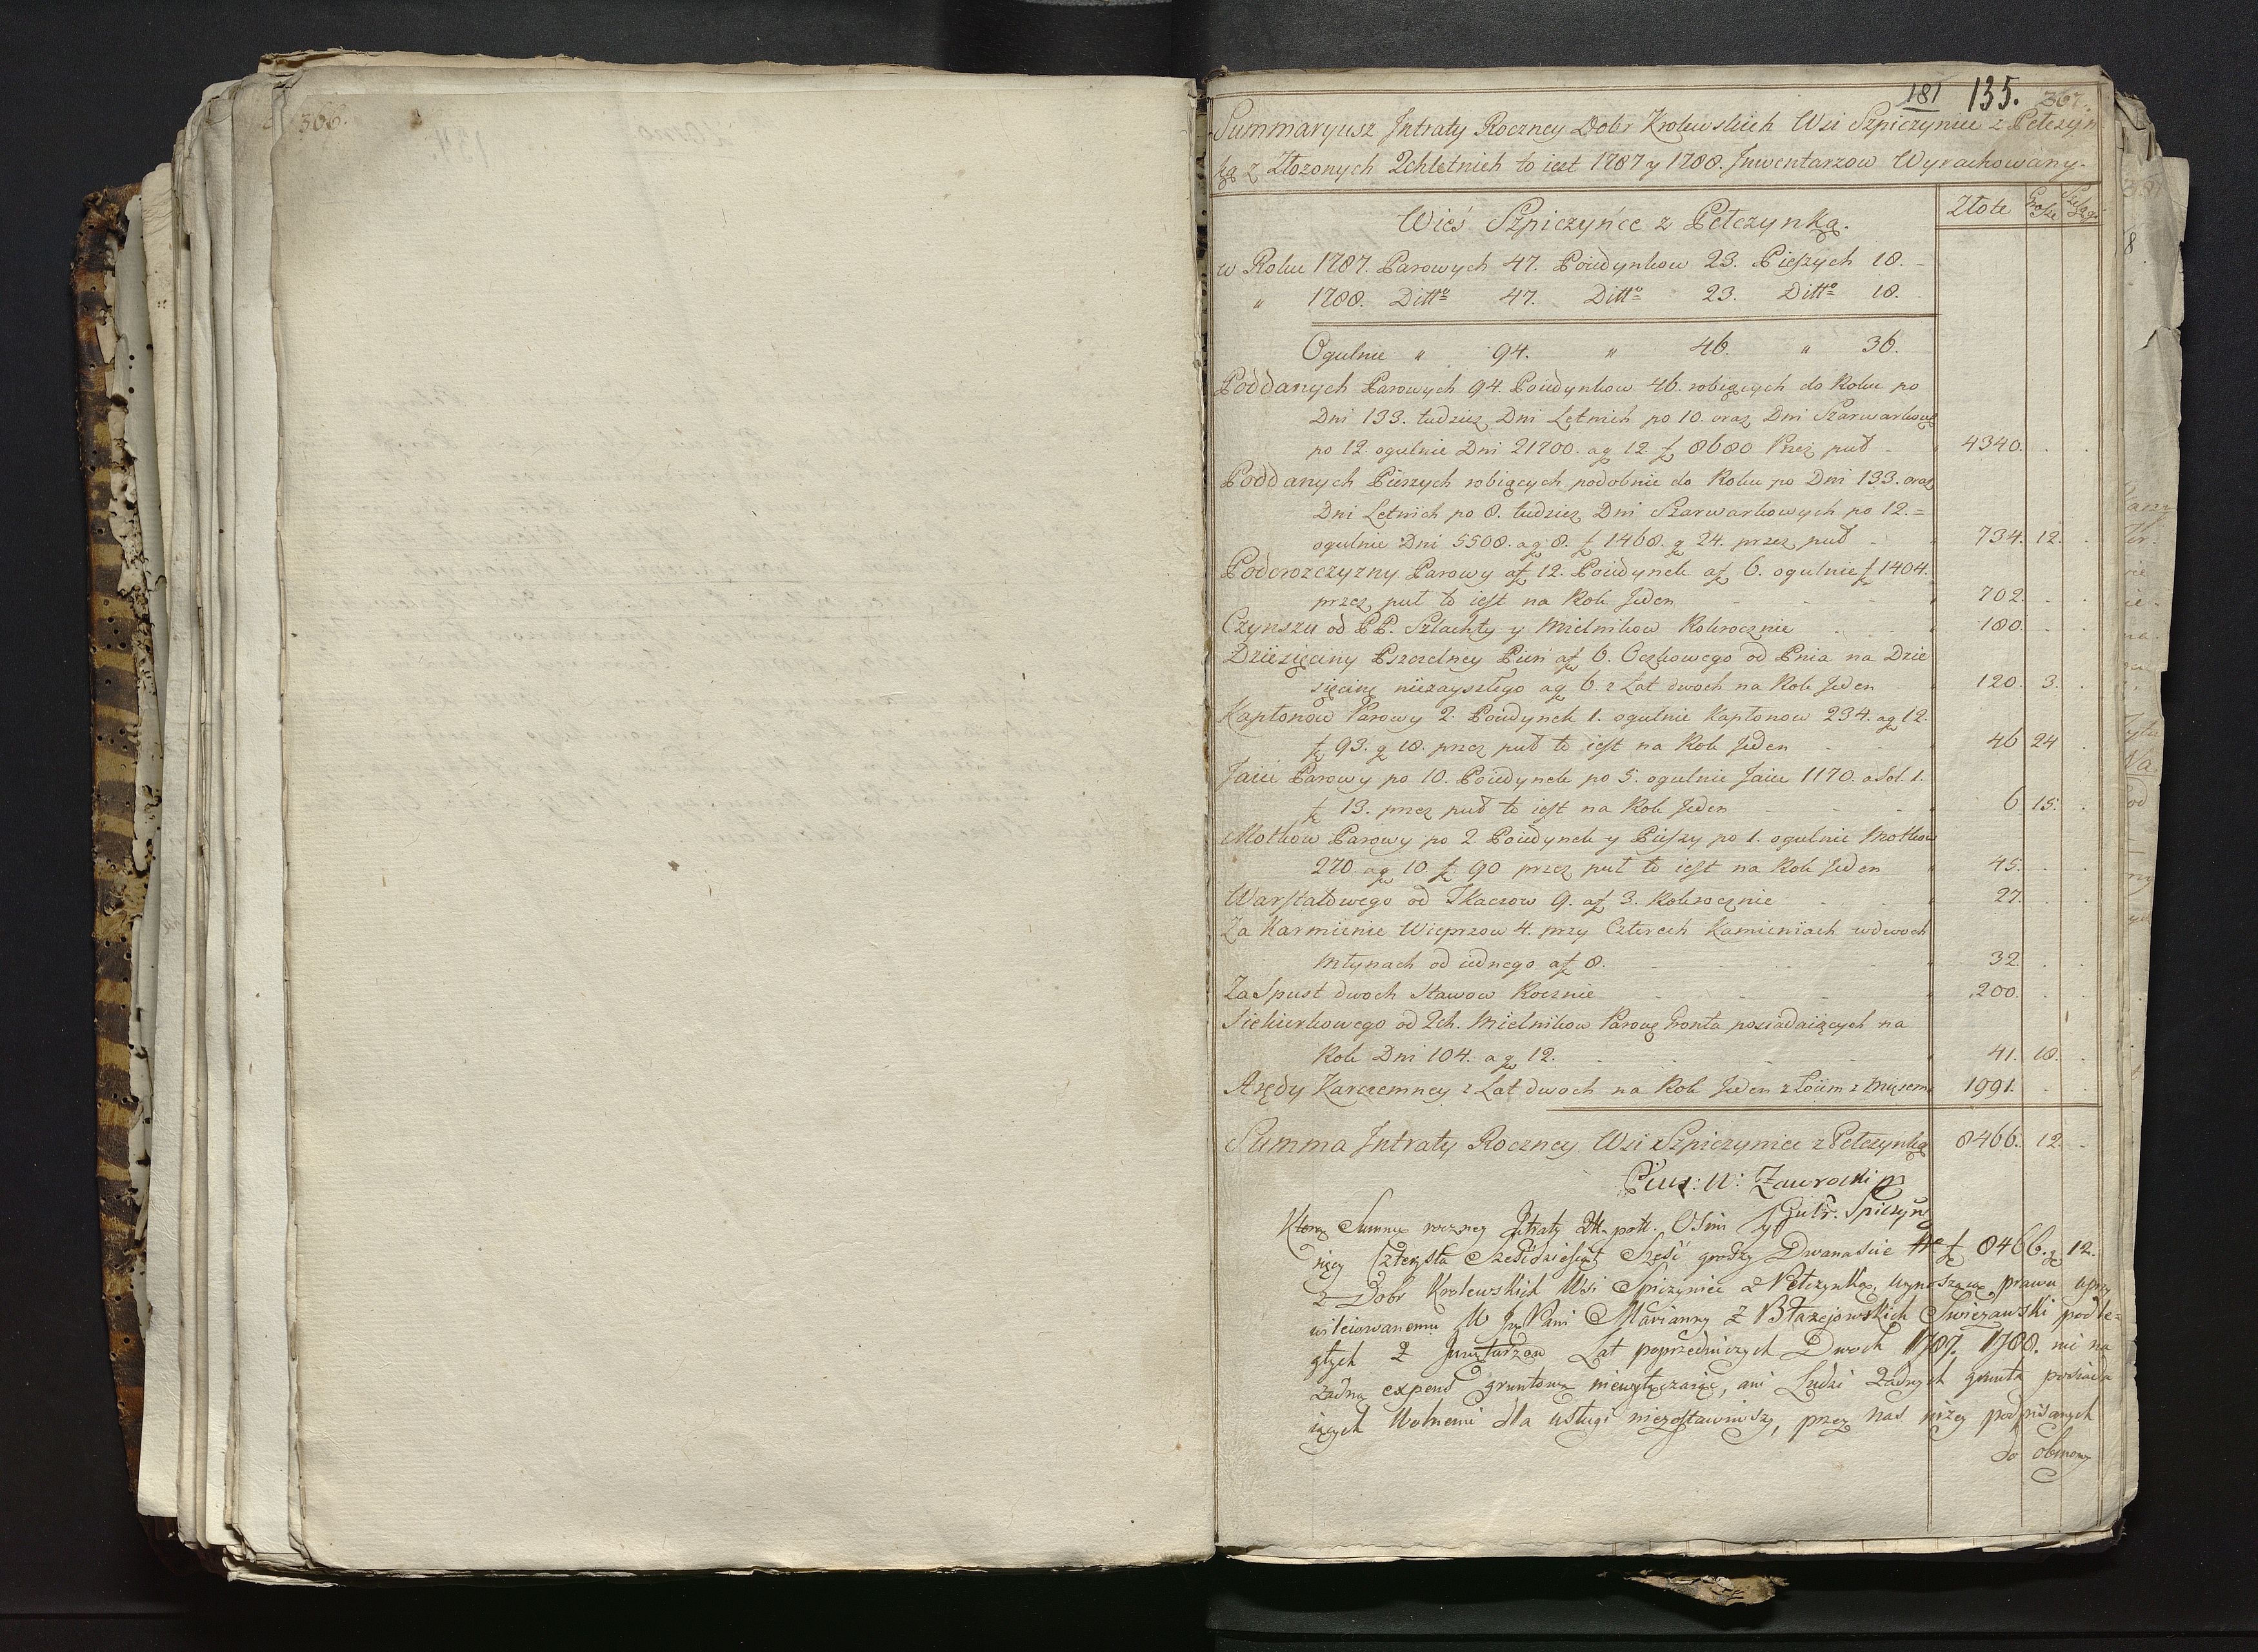 366.
181 135. 367.
Summaryusz Jntraty Roczney Dobr Krolewskich Wsi Szpiczyniec z Pełczyn
ką z Złożonych 2chletnich to iest 1787 y 1788. Jnwentarzow Wyrachowany.
Złote Grosze Szelągi
Wieś Szpiczyńce z Pełczynką.
w Roku 1787. Parowych 47. Poiedynkow 23. Pieszych 18.
" 1788. Ditto 47. Ditto 23. Ditto 18.
Ogulnie " 94. " 46. " 36.
Poddanych Parowych 94. Poiedynkow 46. robiących do Roku po
Dni 133. tudzież Dni Letnich po 10. oraz Dni Szarwarkow
po 12. ogulnie Dni 21700. a g 12. f 8680 Przez puł 4340.
Poddanych Pieszych robiących podobnie do Roku po Dni 133. oraz
Dni Letnich po 8. tudzież Dni Szarwarkowych po 12. =
ogulnie Dni 5508. a g 8. f 1468. g 24. przez puł 734. 12.
Podorozczyzny Parowy a f 12. Poiedynek a f 6. ogulnie f 1404.
przez puł to iest na Rok Jeden 702.
Czynszu od PP. Szlachty y Mielnikow Rokrocznie 180.
Dziesięciny Pszczelney Pień a f 6. Oczkowego od Pnia na Dzie
sięcinę niezayszłego a g 6. z Lat dwoch na Rok Jeden 120. 3.
Kapłonow Parowy 2. Poiedynek 1. ogulnie Kapłonow 234. a g 12.
f 93. g 18. przez puł to iest na Rok Jeden 46 24
Jaiec Parowy po 10. Poiedynek po 5. ogulnie Jaiec 1170. a Sol. 1.
f 13. przez puł to iest na Rok Jeden 6 15.
Motkow Parowy po 2 Poiedynek y Pieszy po 1. ogulnie Motkow
270. a g 10. f 90 przez puł to iest na Rok Jeden 45.
Warsztatowego od Tkaczow 9. a f 3. Rokrocznie 27.
Za Karmienie Wieprzow 4. przy Czterech Kamieniach w dwoch
Młynach od iednego a f 8. 32
Za Spust dwoch Stawow Rocznie 200.
Siekierkowego od 2ch. Mielnikow Parowe Gronta posiadaiących na
Rok Dni 104. a g 12. 41. 18.
Arędy Karczemney z Lat dwoch na Rok Jeden z Łoiem z Mięsem 1991.
Summa Jntraty Roczney Wsi Szpiczyniec z Pełczynką 8466. 12.
Zawrocki
Ktorą Summę roczney Jtraty Zł. pol. Ośm Ty
sięcy Czterysta Sześćdziesiąt Sześć groszy Dwanaście f 8466. g 12.
z Dobr Krolewskich Wsi Spiczyniec z Pełczynką, wynoszącą, prawu uprzy
wileiowanemu W Jey Pani Maryanny z Błażejowskich Swieżawski podle=
głych z Jnwętarzow Lat poprzedniczych Dwoch 1787. 1788. nic na
żadną expens gruntową niewytrącaiąc, ani Ludzi żadnych grunta posiada
iących Wolnemi dla usługi niezostawuiszy, przez nas niżey podpisanych
do obmowy